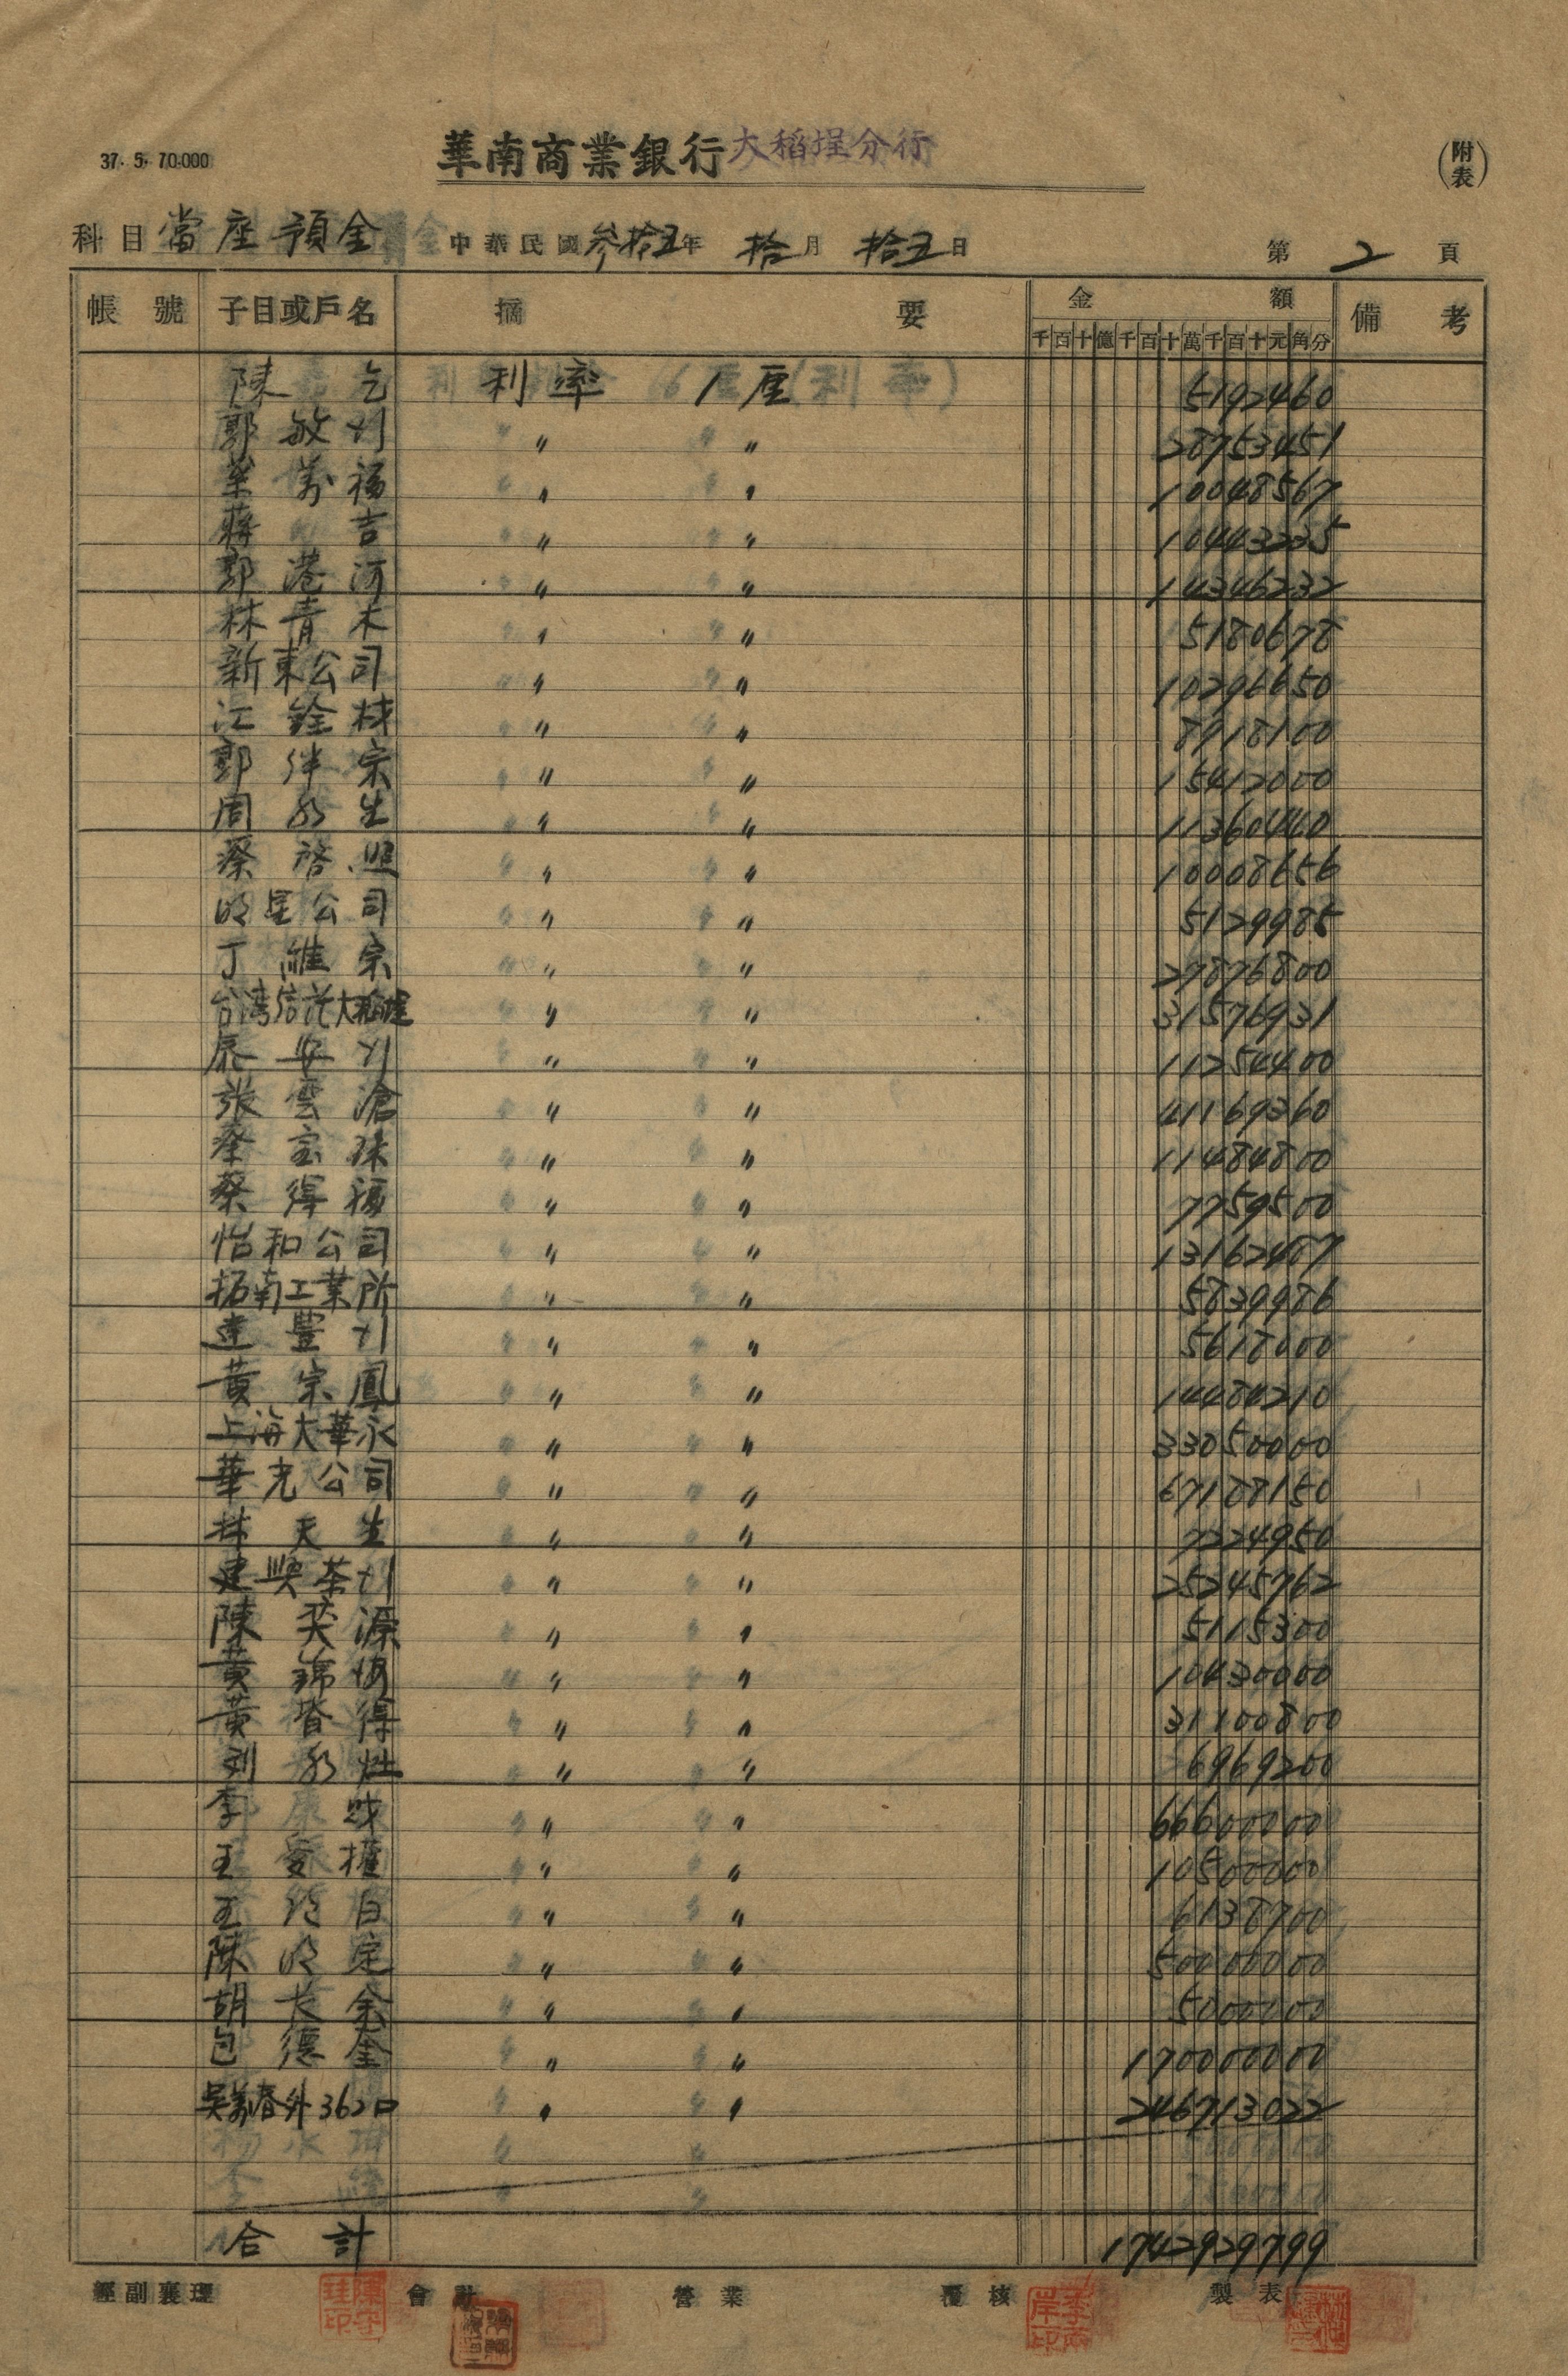 37. 5. 70.000
華南商業銀行 大稻埕分行
(附表)
科目 當座預金 中華民國參拾五年 拾月 拾五日 第 2 頁
帳號 子目或戶名 摘要 金額 備考
千百十億千百十萬千百十元角分
陳 乞 利率 1厘 5192460
郭敏 〃 〃 28753451
葉萬福 〃 〃 10048567
蔣 吉 〃 〃 10443235
郭港河 〃 〃 14346232
林青木 〃 〃 5180678
新東公司 〃 〃 10296650
江銓材 〃 〃 8918100
郭伴宗 〃 〃 15412000
周水生 〃 〃 11360440
蔡啓照 〃 〃 10008656
明星公司 〃 〃 5129985
丁維宗 〃 〃 27876800
台湾信託大稻埕 〃 〃 31576931
安 〃 〃 11254400
張雲滄 〃 〃 41169360
蔡宝珠 〃 〃 11484800
蔡得福 〃 〃 7759500
怡和公司 〃 〃 13162407
拓南工業所 〃 〃 5839986
豊 〃 〃 5618000
黄宗鳳 〃 〃 14484210
上海大華永 〃 〃 33050000
華光公司 〃 〃 67128150
林天生 〃 〃 7224950
建興茶 〃 〃 25245762
陳奕源 〃 〃 5115300
黄錦 〃 〃 10430000
黄 得 〃 〃 31100800
刘水 〃 〃 6969200
李 財 〃 〃 66600000
王愛 〃 〃 10500000
王 白 〃 〃 6138700
陳明定 〃 〃 50000000
胡長金 〃 〃 5000000
包德金 〃 〃 170000000
吳萬春外362口 〃 〃 246713022
合計 1742929799
經副襄理 會計 營業 覆核 製表